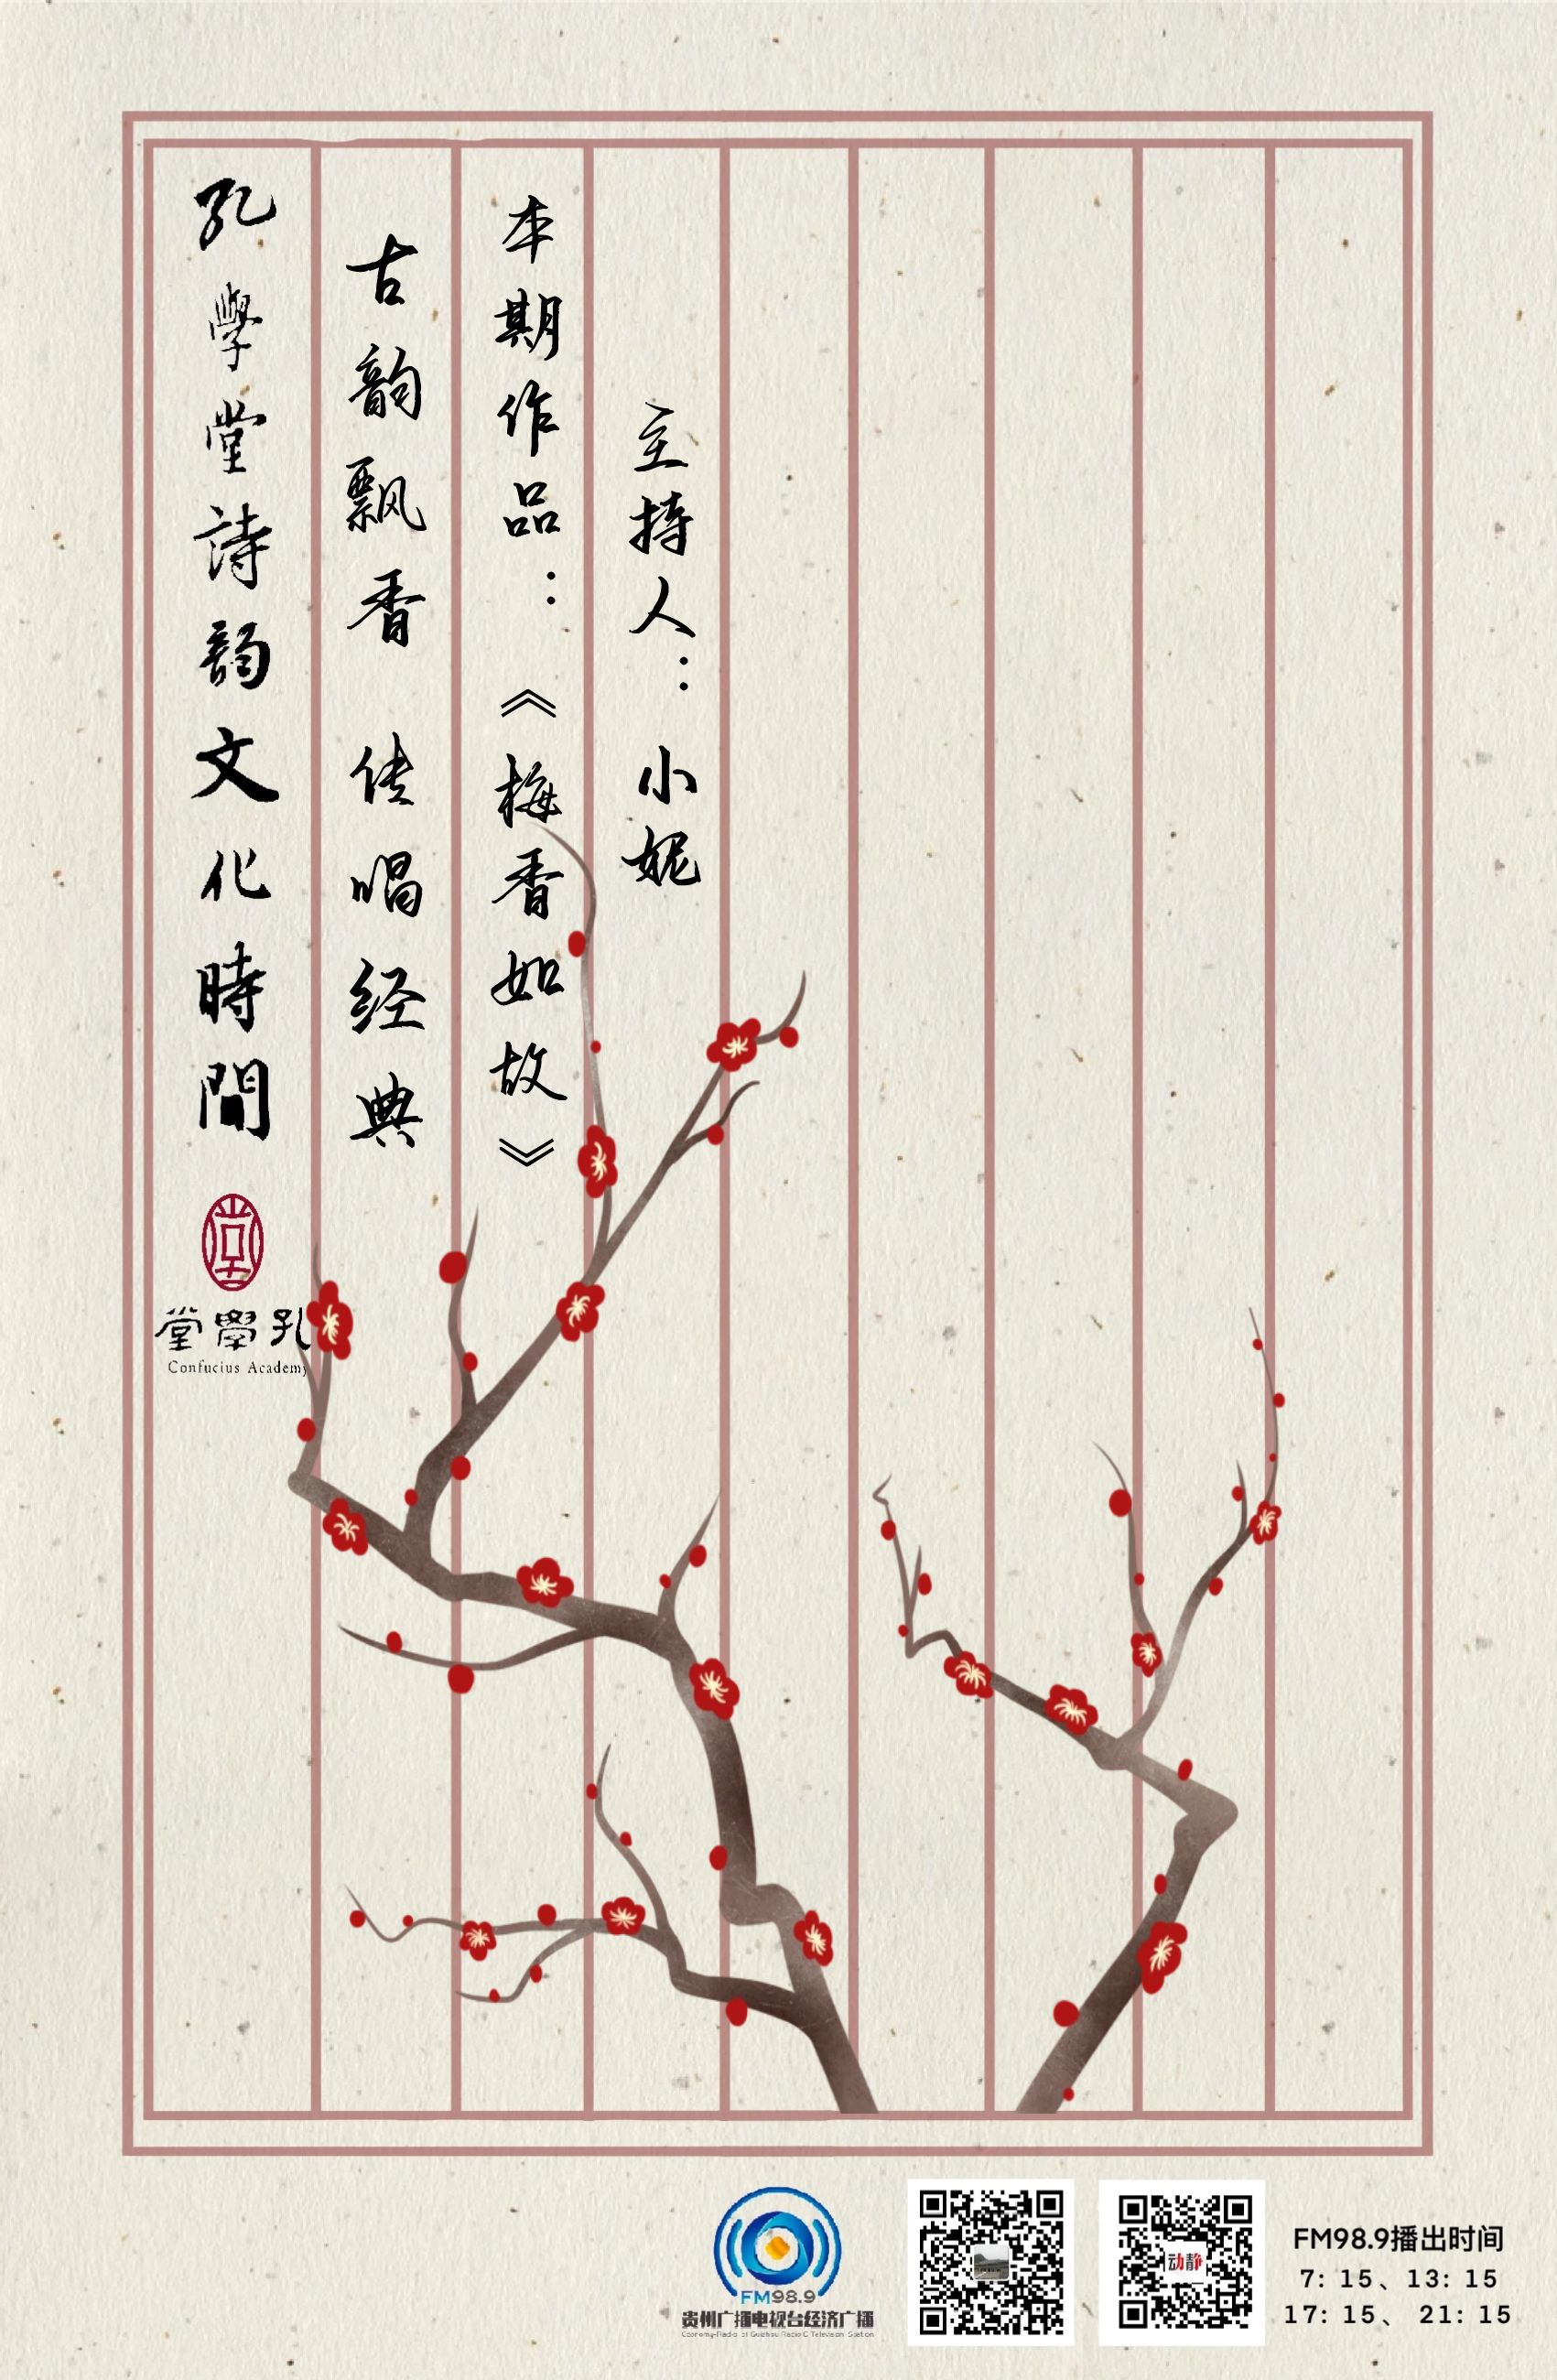 孔學堂詩韵文化時間
古韵飘香 传唱经典
本期作品：《梅香如故》
主持人：小妮
堂學孔
Confucius Academy
FM98.9
贵州广播电视台经济广播
Economy-Radio of Guizhou Radio & Television Station
动静
FM98.9播出时间
7: 15、13: 15
17: 15、 21: 15